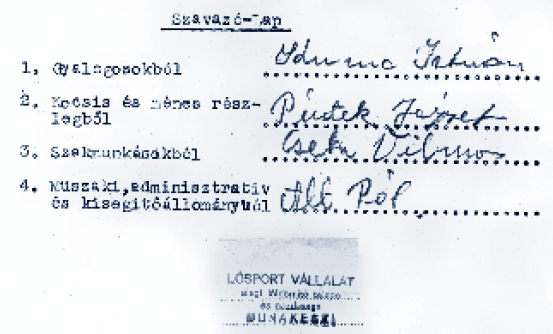 Szavazó-Lap
1. Gyalogosokból István
2. Kocsis és ménes rész-
legből József
3. Szakmunkásokból Vilmos
4. Müszaki,adminisztrativ
és kisegitőállományból Alt Pál
LÓSPORT VÁLLALAT
DUNAKESZI